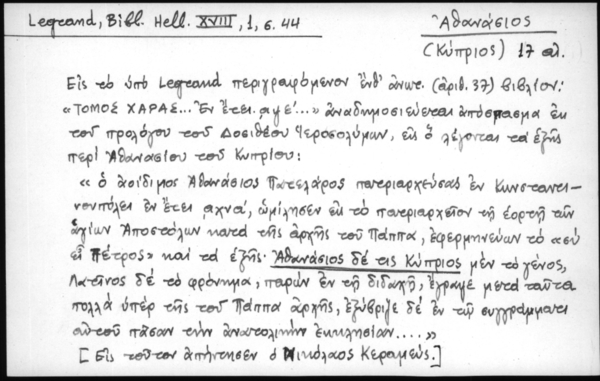 Legrand, Bibl. Hell. XVIII, 1, σ. 44
Ἀθανάσιος
(Κύπριος) 17 αἰ.
Εἰς τὸ ὑπὸ Legrand περιγραφόμενον ἔνθ' ἀνωτ. (ἀριθ. 37) βιβλίον:
«ΤΟΜΟΣ ΧΑΡΑΣ... Ἐν ἔτει ͵αψε΄...» ἀναδημοσιεύεται ἀπόσπασμα ἐκ
τοῦ προλόγου τοῦ Δοσιθέου Ἱεροσολύμων, εἰς ὃ λέγονται τὰ ἑξῆς
περὶ Ἀθανασίου τοῦ Κυπρίου:
« ὁ ἀοίδιμος Ἀθανάσιος Πατελάρος πατριαρχεύσας ἐν Κωνσταντι-
νουπόλει ἐν ἔτει ͵αχνα΄, ὡμίλησεν εἰς τὸ πατριαρχεῖον τῇ ἑορτῇ τῶν
ἁγίων Ἀποστόλων κατὰ τῆς ἀρχῆς τοῦ Πάππα, ἐφερμηνεύων τὸ «σὺ
εἶ Πέτρος» καὶ τὰ ἑξῆς· Ἀθανάσιος δέ τις Κύπριος μὲν τὸ γένος,
Λατῖνος δὲ τὸ φρόνημα, παρὼν ἐν τῇ διδαχῇ, ἔγραψε μετὰ ταῦτα
πολλὰ ὑπὲρ τῆς τοῦ Πάππα ἀρχῆς, ἐξύβριζε δὲ ἐν τῷ συγγράμματι
αὐτοῦ πᾶσαν τὴν ἀνατολικὴν ἐκκλησίαν....»
[Εἰς τοῦτον ἀπήντησεν ὁ Νικόλαος Κεραμεύς.]